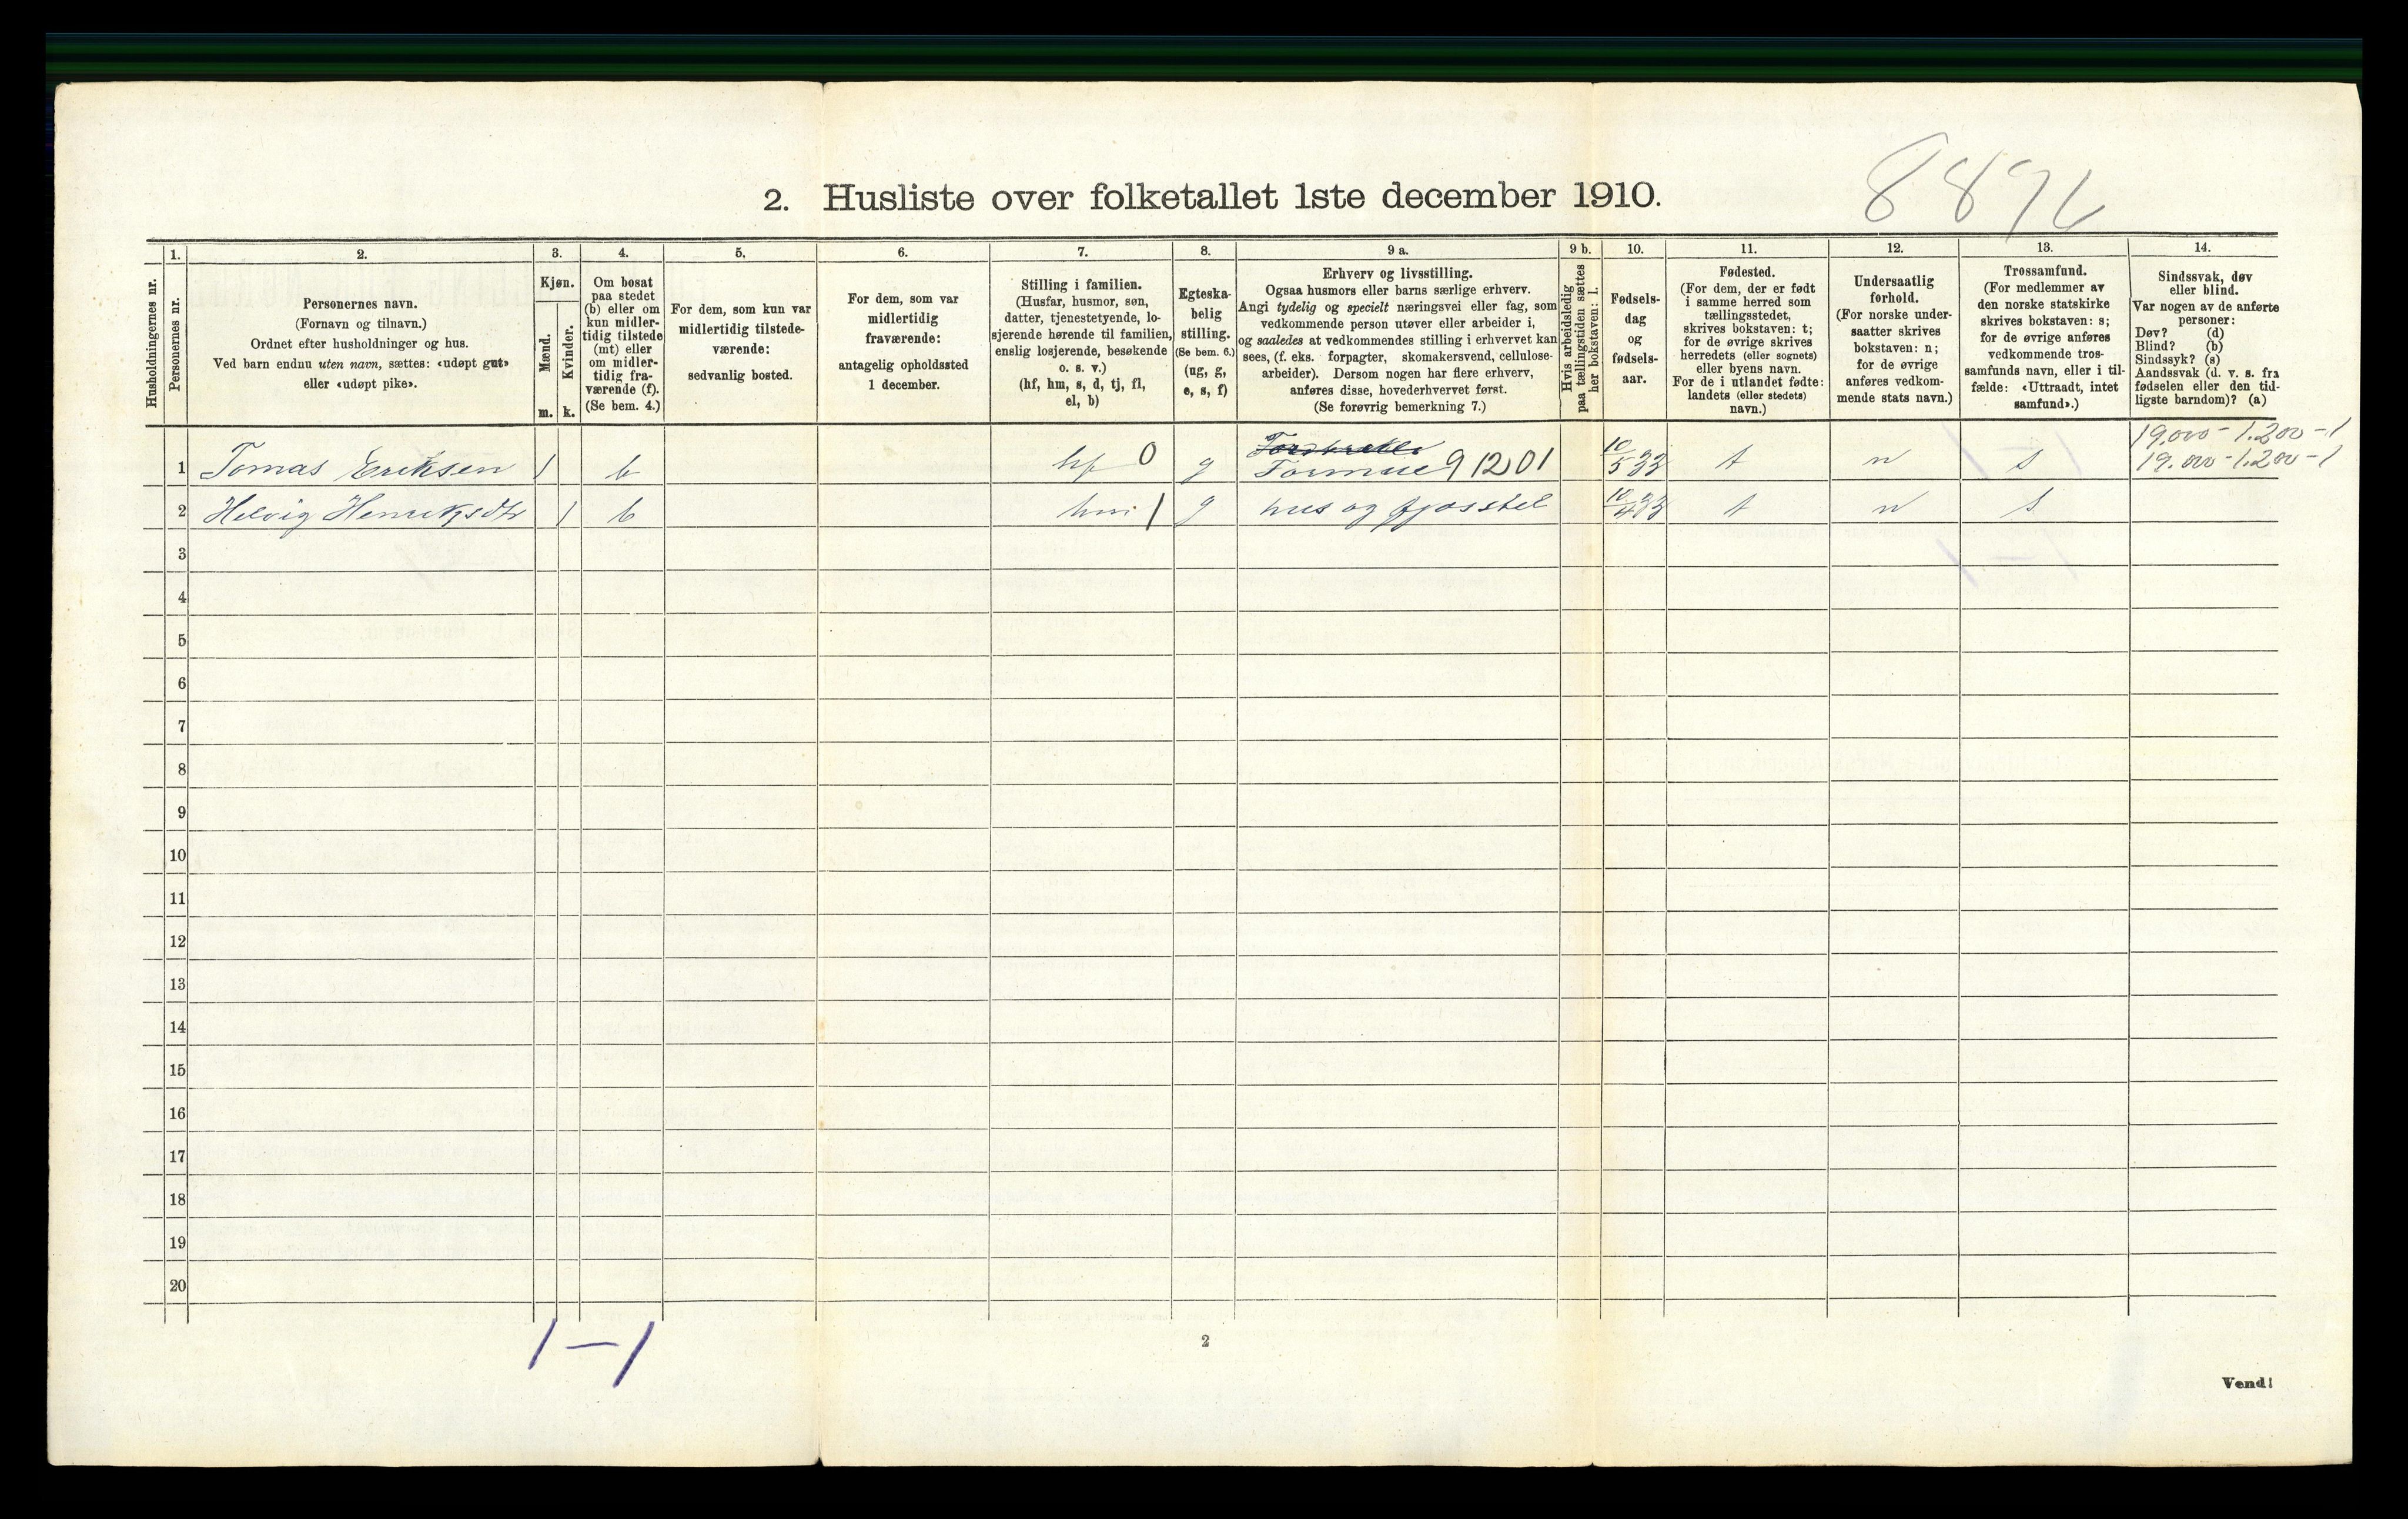 8896
2. Husliste over folketallet 1ste december 1910.
Husholdningernes nr.
1.
Personernes nr.
2.
Personernes navn.
(Fornavn og tilnavn.)
Ordnet efter husholdninger og hus.
Ved barn endnu uten navn, sættes: «udøpt gut»
eller «udøpt pike».
3.
Kjøn.
Mænd.
m.
Kvinder.
k.
4.
Om bosat
paa stedet
(b) eller om
kun midler-
tidig tilstede
(mt) eller
om midler-
tidig fra-
værende (f).
(Se bem. 4.)
5.
For dem, som kun var
midlertidig tilstede-
værende:
sedvanlig bosted.
6.
For dem, som var
midlertidig
fraværende:
antagelig opholdssted
1 december.
7.
Stilling i familien.
(Husfar, husmor, søn,
datter, tjenestetyende, lo-
sjerende hørende til familien,
enslig losjerende, besøkende
o. s. v.)
(hf, hm, s, d, tj, fl,
el, b)
8.
Egteska-
belig
stilling.
(Se bem. 6.)
(ug, g,
e, s, f)
9 a.
Erhverv og livsstilling.
Ogsaa husmors eller barns særlige erhverv.
Angi tydelig og specielt næringsvei eller fag, som
vedkommende person utøver eller arbeider i,
og saaledes at vedkommendes stilling i erhvervet kan
sees, (f. eks. forpagter, skomakersvend, cellulose-
arbeider). Dersom nogen har flere erhverv,
anføres disse, hovederhvervet først.
(Se forøvrig bemerkning 7.)
9 b.
Hvis arbeidsledig
paa tællingstiden sættes
her bokstaven: l.
10.
Fødsels-
dag
og
fødsels-
aar.
11.
Fødested.
(For dem, der er født
i samme herred som
tællingsstedet,
skrives bokstaven: t;
for de øvrige skrives
herredets (eller sognets)
eller byens navn.
For de i utlandet fødte:
landets (eller stedets)
navn.)
12.
Undersaatlig
forhold.
(For norske under-
saatter skrives
bokstaven: n;
for de øvrige
anføres vedkom-
mende stats navn.)
13.
Trossamfund.
(For medlemmer av
den norske statskirke
skrives bokstaven: s;
for de øvrige anføres
vedkommende tros-
samfunds navn, eller i til-
fælde: «Uttraadt, intet
samfund».)
14.
Sindssvak, døv
eller blind.
Var nogen av de anførte
personer:
Døv? (d)
Blind? (b)
Sindssyk? (s)
Aandssvak (d. v. s. fra
fødselen eller den tid-
ligste barndom)? (a)
19.000 - 1.200 - 1
1 Tomas Eriksen 1 b hf 0 g Formue 91201 10/5 33 t n s 19.000 - 1.200 - 1
2 Helvig Henriksdtr 1 b hm 1 g hus og fjøsstel 10/4 33 t n s
3
4
5
6
7
8
9
10
11
12
13
14
15
16
17
18
19
20
1 - 1
2
Vend!